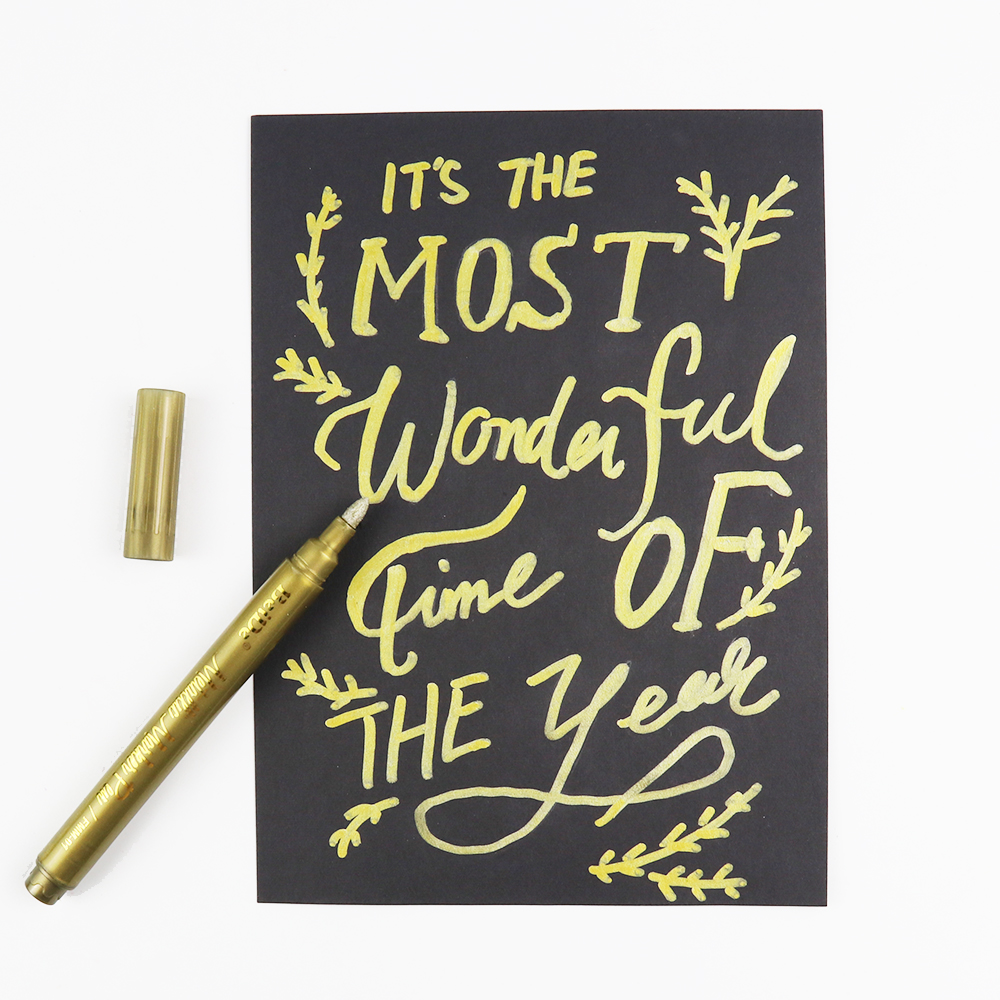 IT'S THE
MOST
Wonderful
Time OF
THE Year
BaiDe
Metallic Marker Pen